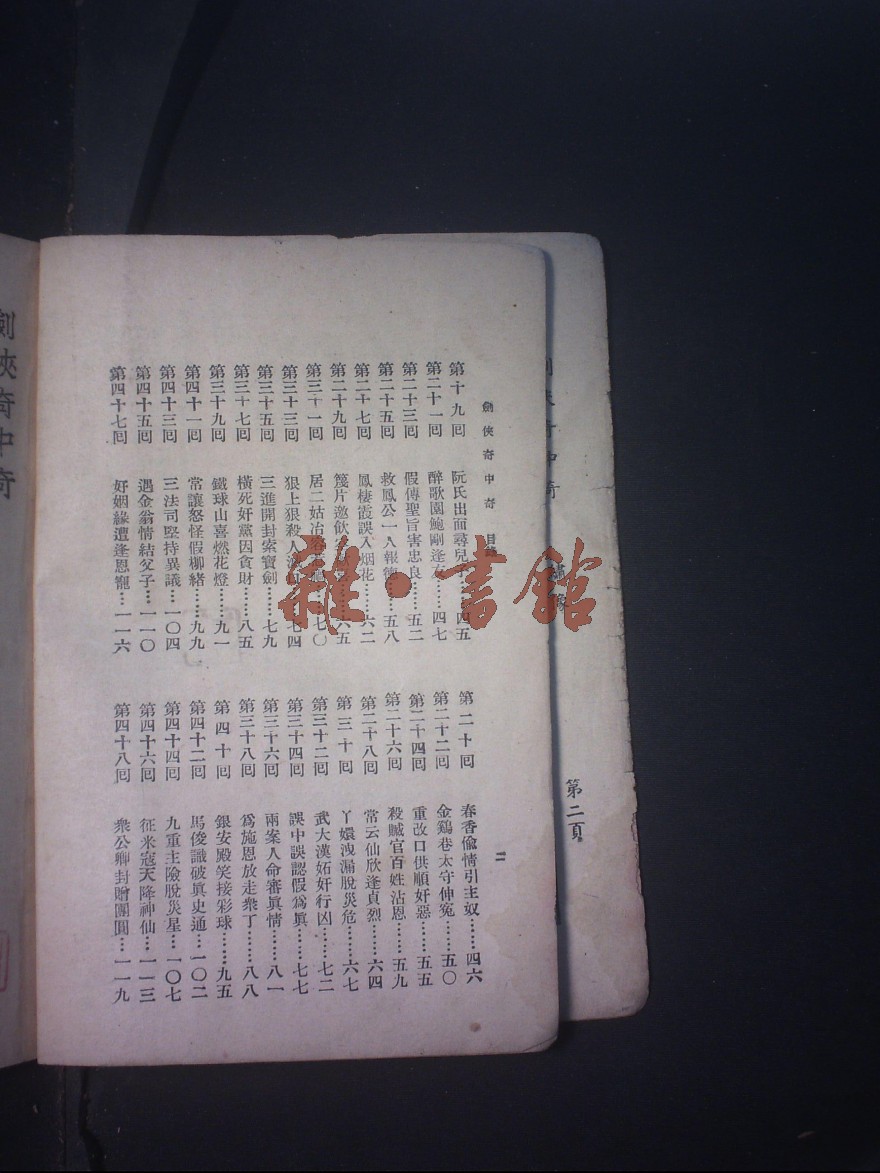 劍俠奇中奇　目
第十九回　阮氏出而尋兒子……四五
第二十回　春香偸情引主奴……四六
第二十一回　醉歌園鮑剛逢友……四七
第二十二回　金鷄巷太守伸冤……五〇
第二十三回　假傳聖旨害忠良……五二
第二十四回　重改口供順奸惡……五五
第二十五回　救鳳公一人報德……五八
第二十六回　殺贓官百姓沾恩……五九
第二十七回　鳳棲霞誤入烟花……六二
第二十八回　常云仙欣逢貞烈……六四
第二十九回　篾片邀飲……六五
第三十回　丫嬛洩漏脫災危……六七
第三十一回　居二姑冶容……七〇
第三十二回　武大漢妬奸行凶……七二
第三十三回　狠上狠殺人……七四
第三十四回　誤中誤認假爲眞……七七
第三十五回　三進開封索寶劍……七九
第三十六回　兩案人命審眞情……八一
第三十七回　橫死奸黨因貪財……八五
第三十八回　爲施恩放走衆丁……八八
第三十九回　鐵球山喜燃花燈……九一
第四十回　銀安殿笑接彩球……九五
第四十一回　常讓怒怪假柳緒……九九
第四十二回　馬俊識破眞史通…一〇二
第四十三回　三法司堅持異議…一〇四
第四十四回　九重主險脫災星…一〇七
第四十五回　遇金翁情結父子…一一〇
第四十六回　征米寇天降神仙…一一三
第四十七回　好姻緣遭逢恩寵…一一六
第四十八回　衆公卿封贈團圓…一一九
二
第二頁
劍俠奇中奇
雜·書館